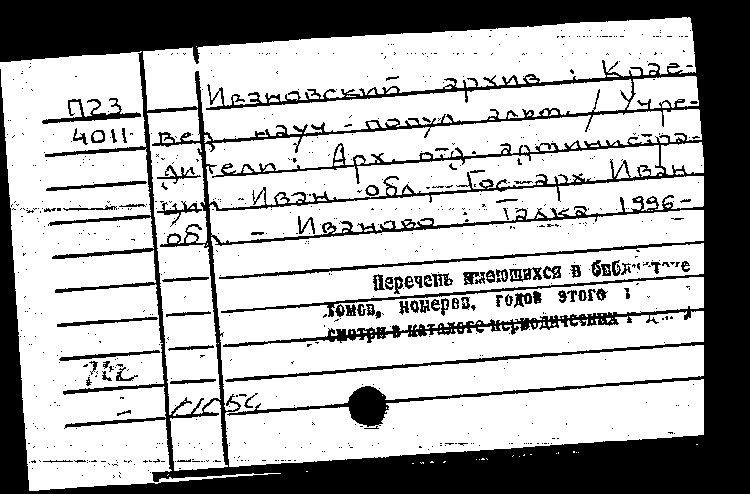 П23
4011
Ивановский архив : Крае-
вед. науч.-попул. альм. / Учре-
дители: Арх. отд. администра-
ции Иван. обл., Гос. арх. Иван.
обл. - Иваново : Талка, 1996-
Перечень имеющихся в
томов, номеров, годов этого
смотри в каталоге периодических